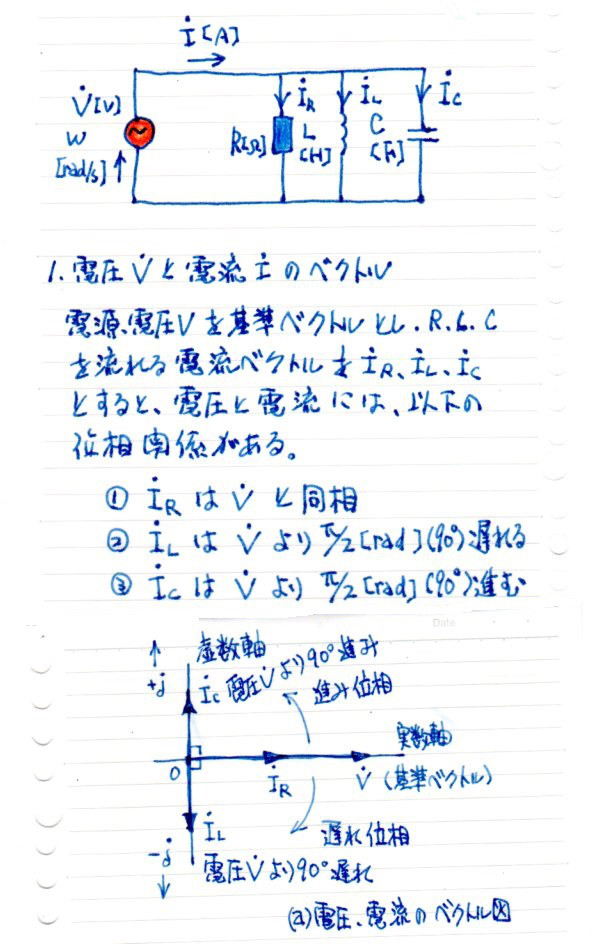 İ[A]
V̇[V]
ω
[rad/s]
İR
R[Ω]
İL
L
[H]
İC
C
[F]
1. 電圧V̇と電流İのベクトル
電源電圧Vを基準ベクトルとし、R、L、C
を流れる電流ベクトルをİR、İL、İC
とすると、電圧と電流には、以下の
位相関係がある。
① İRはV̇と同相
② İLはV̇よりπ/2[rad](90°)遅れる
③ İCはV̇よりπ/2[rad](90°)進む
Date
虚数軸
+j
İC 電圧V̇より90°進み
進み位相
実数軸
0
İR
V̇ (基準ベクトル)
İL
遅れ位相
-j
電圧V̇より90°遅れ
(a)電圧、電流のベクトル図